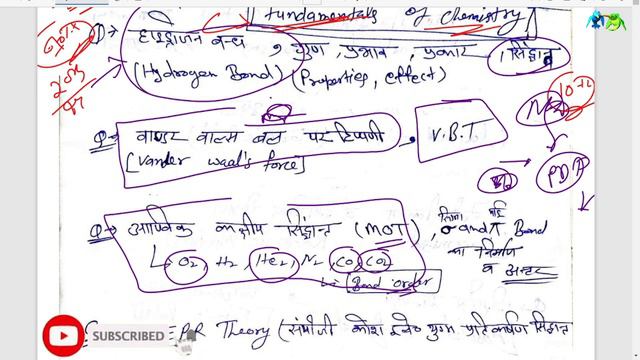 Fundamentals of Chemistry
हाइड्रोजन बन्ध, गुण, प्रभाव, प्रकार, सिद्धांत
(Hydrogen Bond) (Properties, effect)
Q→ वाण्डर वाल्स बल पर टिप्पणी, V.B.T
[Vander waal's force]
PDF
Q→ आण्विक कक्षीय सिद्धांत (MOT), σ and π Bond
का निर्माण
व अन्तर
O2, H2, He2, N2, CO, CO2
Bond order
SUBSCRIBED
PR Theory (संयोजी कोश इले० युग्म प्रतिकर्षण सिद्धांत